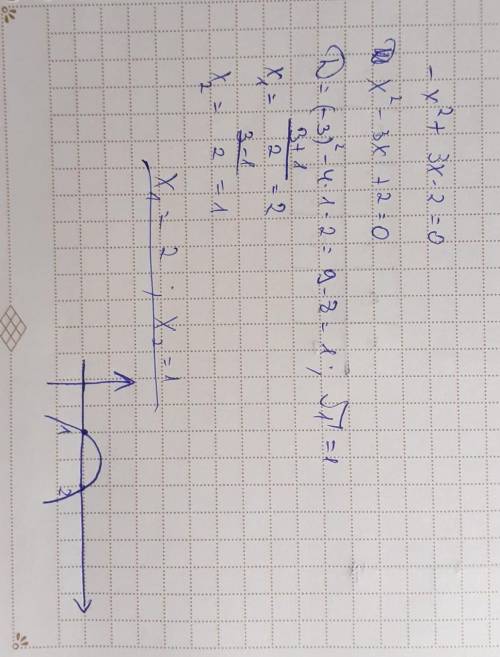 -x² + 3x - 2 = 0
x² - 3x + 2 = 0
D = (-3)² - 4·1·2 = 9 - 8 = 1; √1 = 1
x₁ = (3+1)/2 = 2
x₂ = (3-1)/2 = 1
x₁ = 2; x₂ = 1
1 2